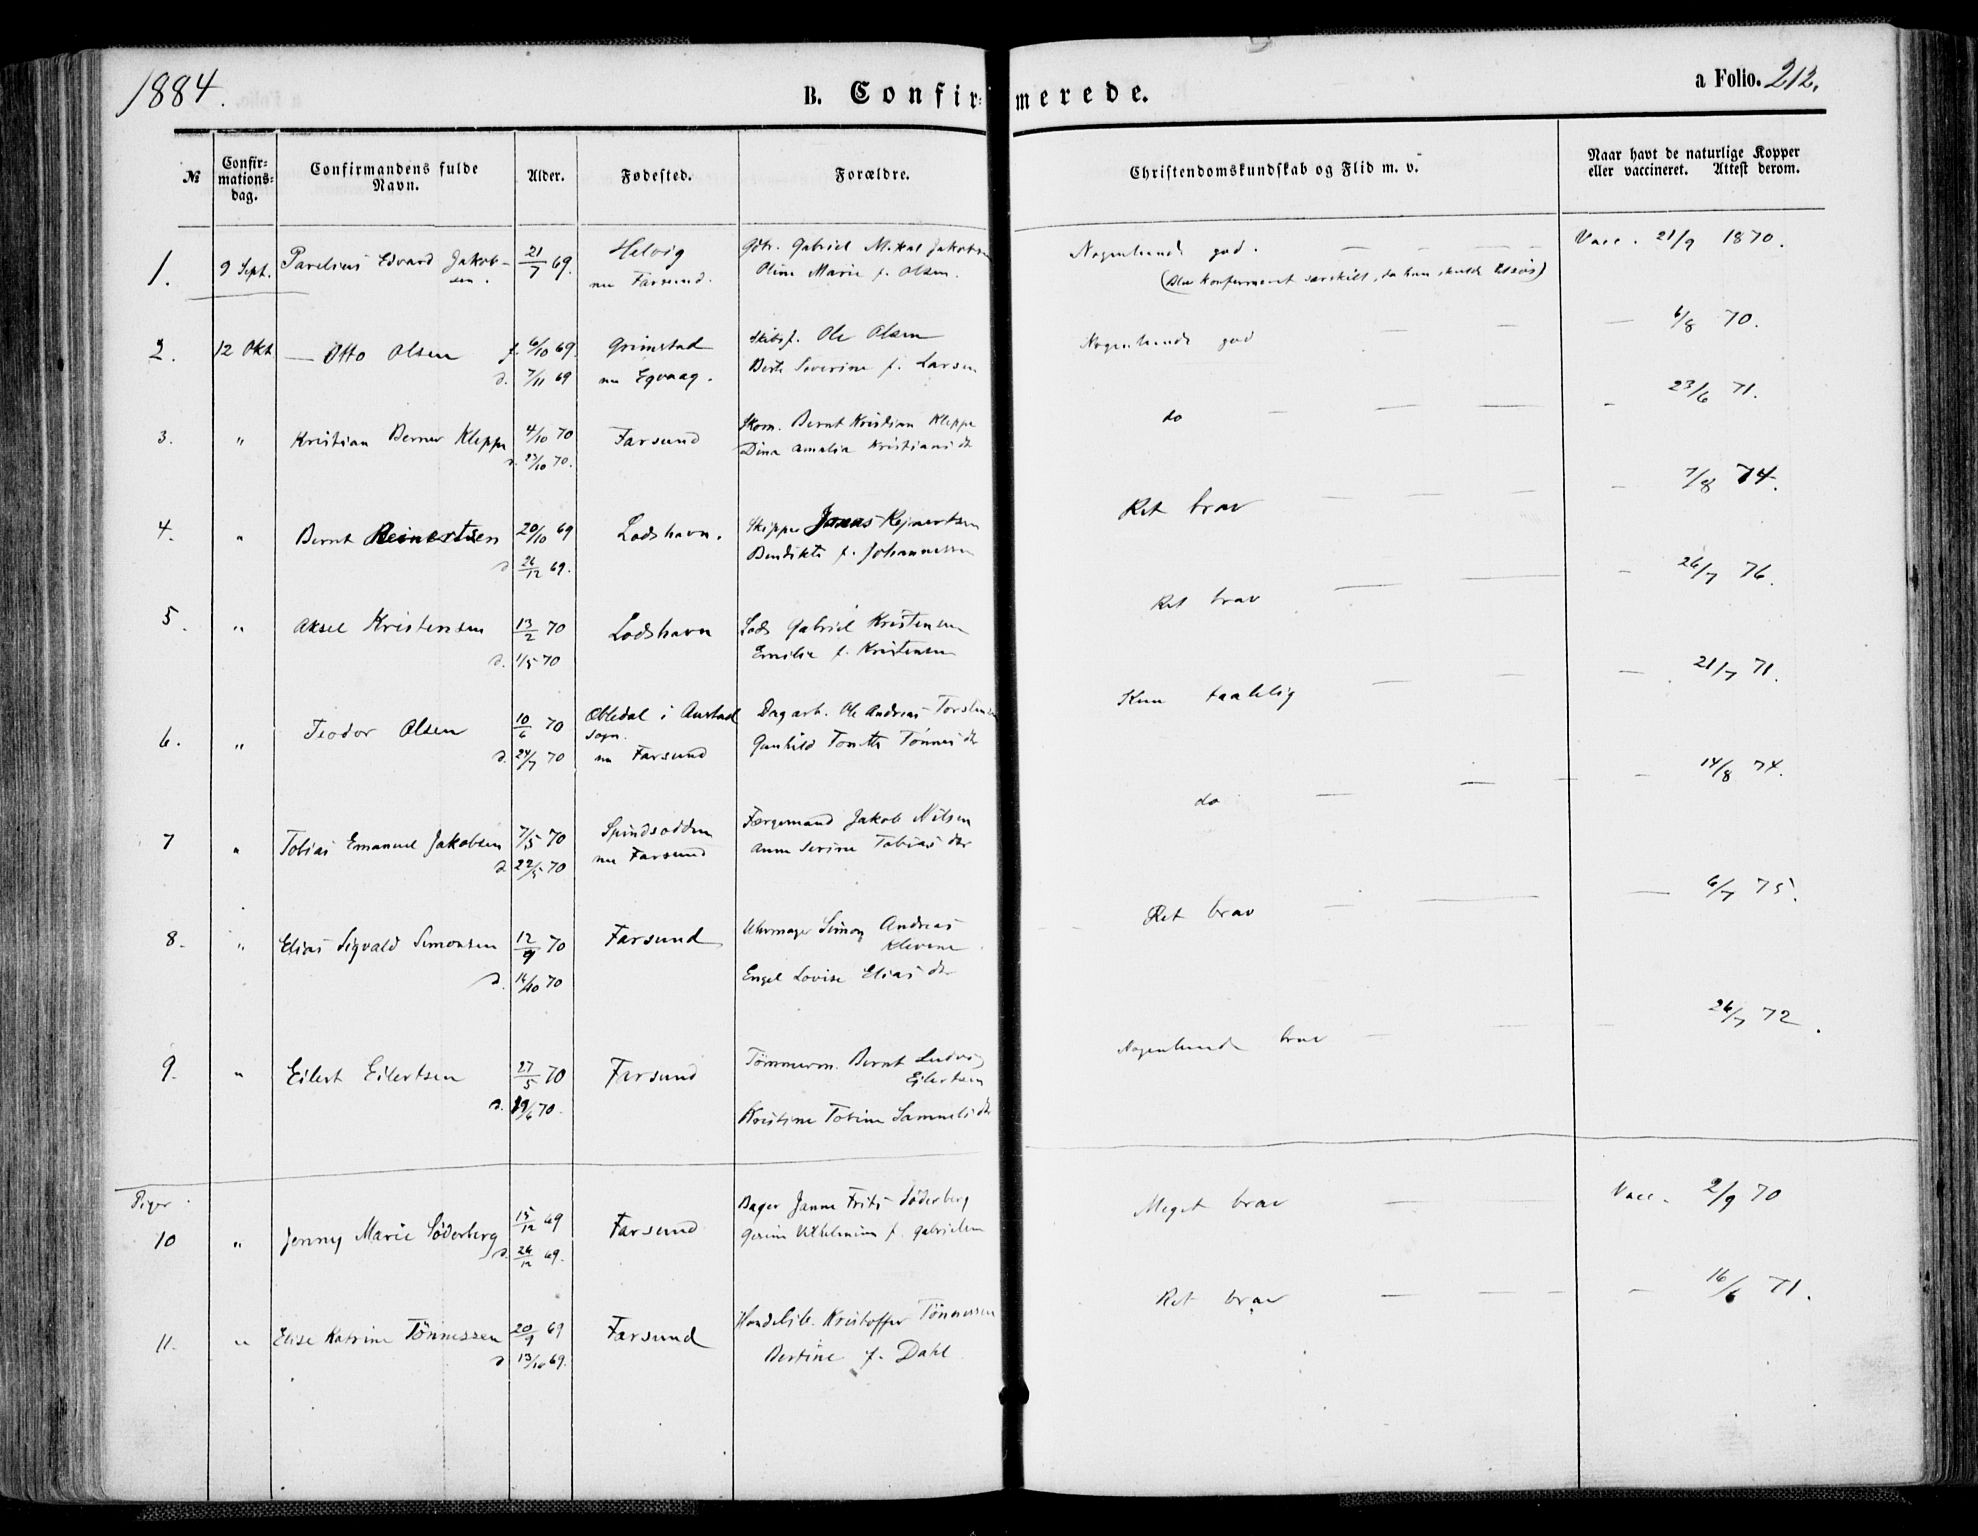 1884.
B. Confir=merede.
a Folio. 212.
№
Confir=
mations=
dag.
Confirmandens fulde
Navn.
Alder.
Fødested.
Forældre.
Christendomskundskab og Flid m. v.
Naar havt de naturlige Kopper
eller vaccineret. Attest derom.
1. 9 Sept. Parelius Edvard Jakob-
sen. 21/7 69. Helvig
nu Farsund. Gabriel Mikal Jakobsen
Oline Marie f. Olsen.
Nogenlunde god.
(Blev konfirmeret særskilt, da han skulde tilsøs)
Vacc. 21/9 1870.
2. 12 Okt — Otto Olsen f. 6/10 69.
d. 7/11 69 Grimstad
nu Egvaag. Skibsf. Ole Olsen
Berte Severine f. Larsen
Nogenlunde god — 6/8 70.
3. " Kristian Berner Kleppe 4/10 70
d. 23/10 70. Farsund Skom. Bernt Kristian Kleppe
Dina Amalia Kristiansdr
do — 23/6 71.
4. " Bernt Reinertsen 20/10 69
d 26/12 69. Lodshavn. Skipper Jonas Rejnertsen
Bendikte f. Johannessen
Ret brav — 7/8 74.
5. " Aksel Kristensen 13/2 70
d. 1/5 70 Lodshavn Lods Gabriel Kristensen
Emilie f. Kristensen
Ret brav — 26/7 76.
6. " Teodor Olsen 10/6 70
d. 24/7 70 Øbledal i Austad
Sogn.
nu Farsund Dagarb. Ole Andreas Torstensen
Gunhild Tomette Tønnesdr
Kun taalelig — 21/7 71.
7 " Tobias Emanuel Jakobsen 7/5 70
d 22/5 70 Spindsodden
nu Farsund Færgemand Jakob Nilsen
Anne Serine Tobiasdr
do — 14/8 74.
8. " Elias Sigvald Simonsen 12/9 70
d. 16/10 70 Farsund Uhrmager Simon Andreas
Klevene
Engel Lovise Eliasdr
Ret brav — 6/7 75.
9. " Eilert Eilertsen 27/5 70
d. 19/6 70. Farsund Tømmerm. Bernt Ludvig
Eilertsen
Kristine Tobine Samuelsdr
Nogenlunde brav — 26/7 72.
Piger
10 " Jenny Marie Søderberg 15/12 69
d. 26/12 69. Farsund Bager Janne Frits Søderberg
Vilhelmine f. Gabrielsen
Meget brav — Vacc. 2/9 70
11. " Elise Katrine Tønnessen 20/9 69
d 13/10 69. Farsund Handelsb. Kristoffer Tønnessen
Bertine f. Dahl
Ret brav — 16/6 71.